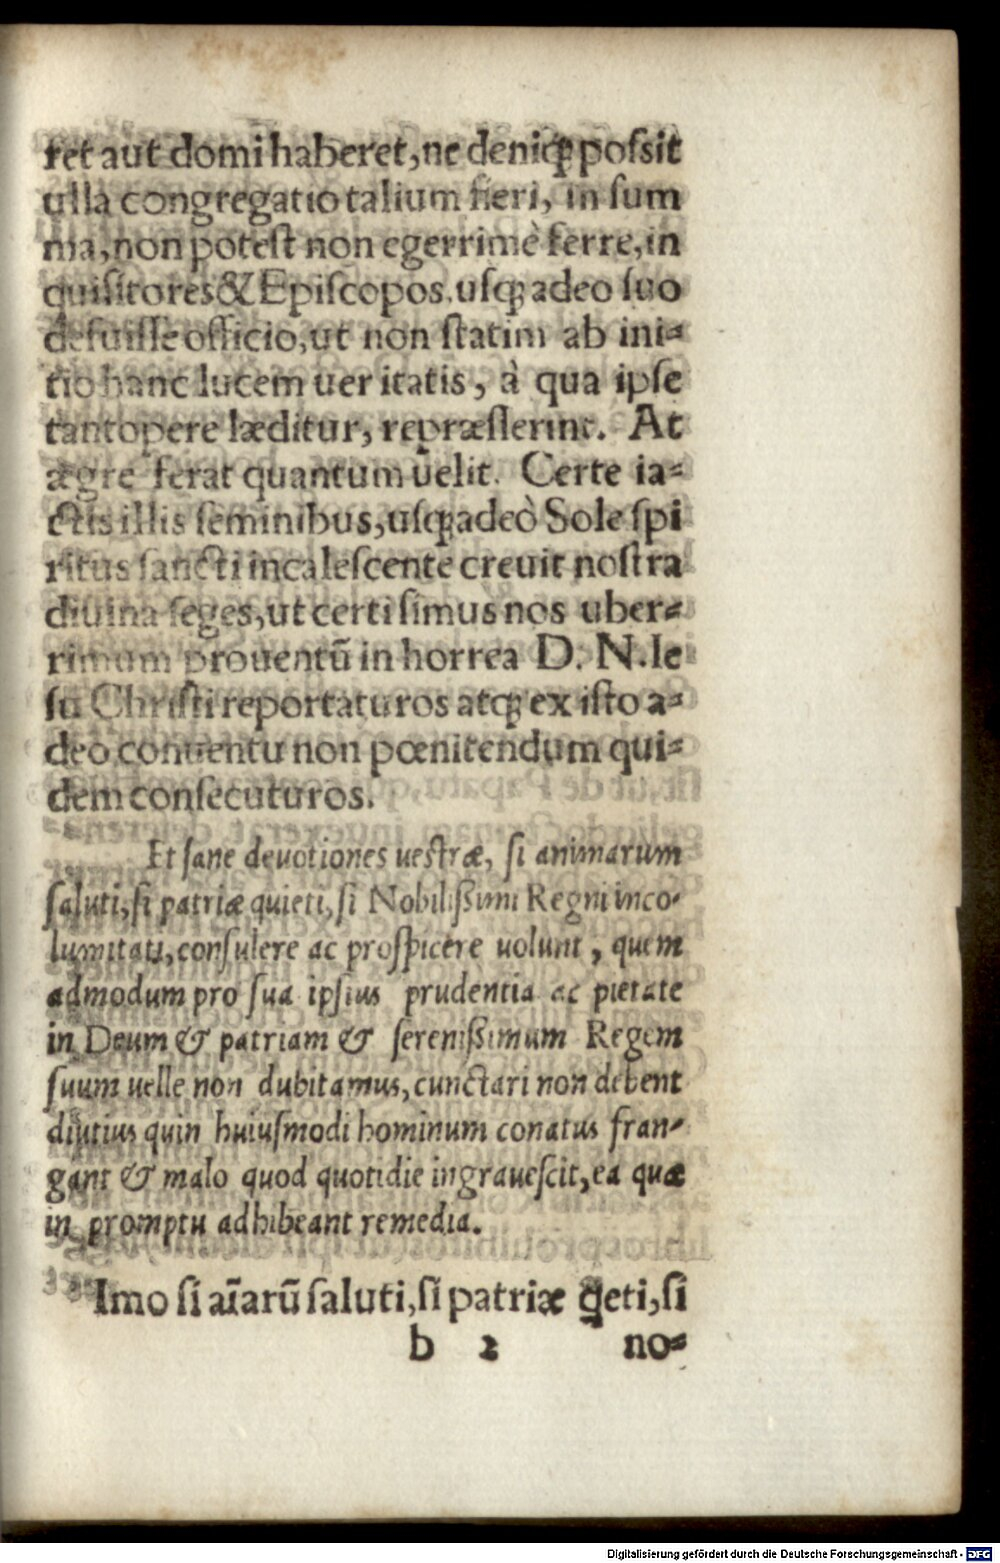 ret aut domi haberet, ne deniqꝫ possit
ulla congregatio talium fieri, in sum
ma, non potest non egerrimè ferre, in
quisitores & Episcopos, usqꝫ adeo suo
defuisse officio, ut non statim ab ini⸗
tio hanc lucem ueritatis, à qua ipse
tantopere læditur, repræsserint. At
ægre ferat quantum uelit. Certe ia⸗
ctis illis seminibus, usqꝫ adeò Sole spi
ritus sancti incalescente creuit nostra
diuina seges, ut certi simus nos uber⸗
rimum prouentũ in horrea D. N. Ie
su Christi reportaturos atqꝫ ex isto a⸗
deo conuentu non pœnitendum qui⸗
dem consecuturos.
Et sane deuotiones uestræ, si animarum
saluti, si patriæ quieti, si Nobilißimi Regni inco⸗
lumitati, consulere ac prospicere uolunt, quem
admodum pro sua ipsius prudentia ac pietate
in Deum & patriam & serenißimum Regem
suum uelle non dubitamus, cunctari non debent
diutius quin huiusmodi hominum conatus fran⸗
gant & malo quod quotidie ingrauescit, ea quæ
in promptu adhibeant remedia.
Imo si aĩarũ saluti, si patriæ q̃eti, si
b 2 no⸗
Digitalisierung gefördert durch die Deutsche Forschungsgemeinschaft - DFG